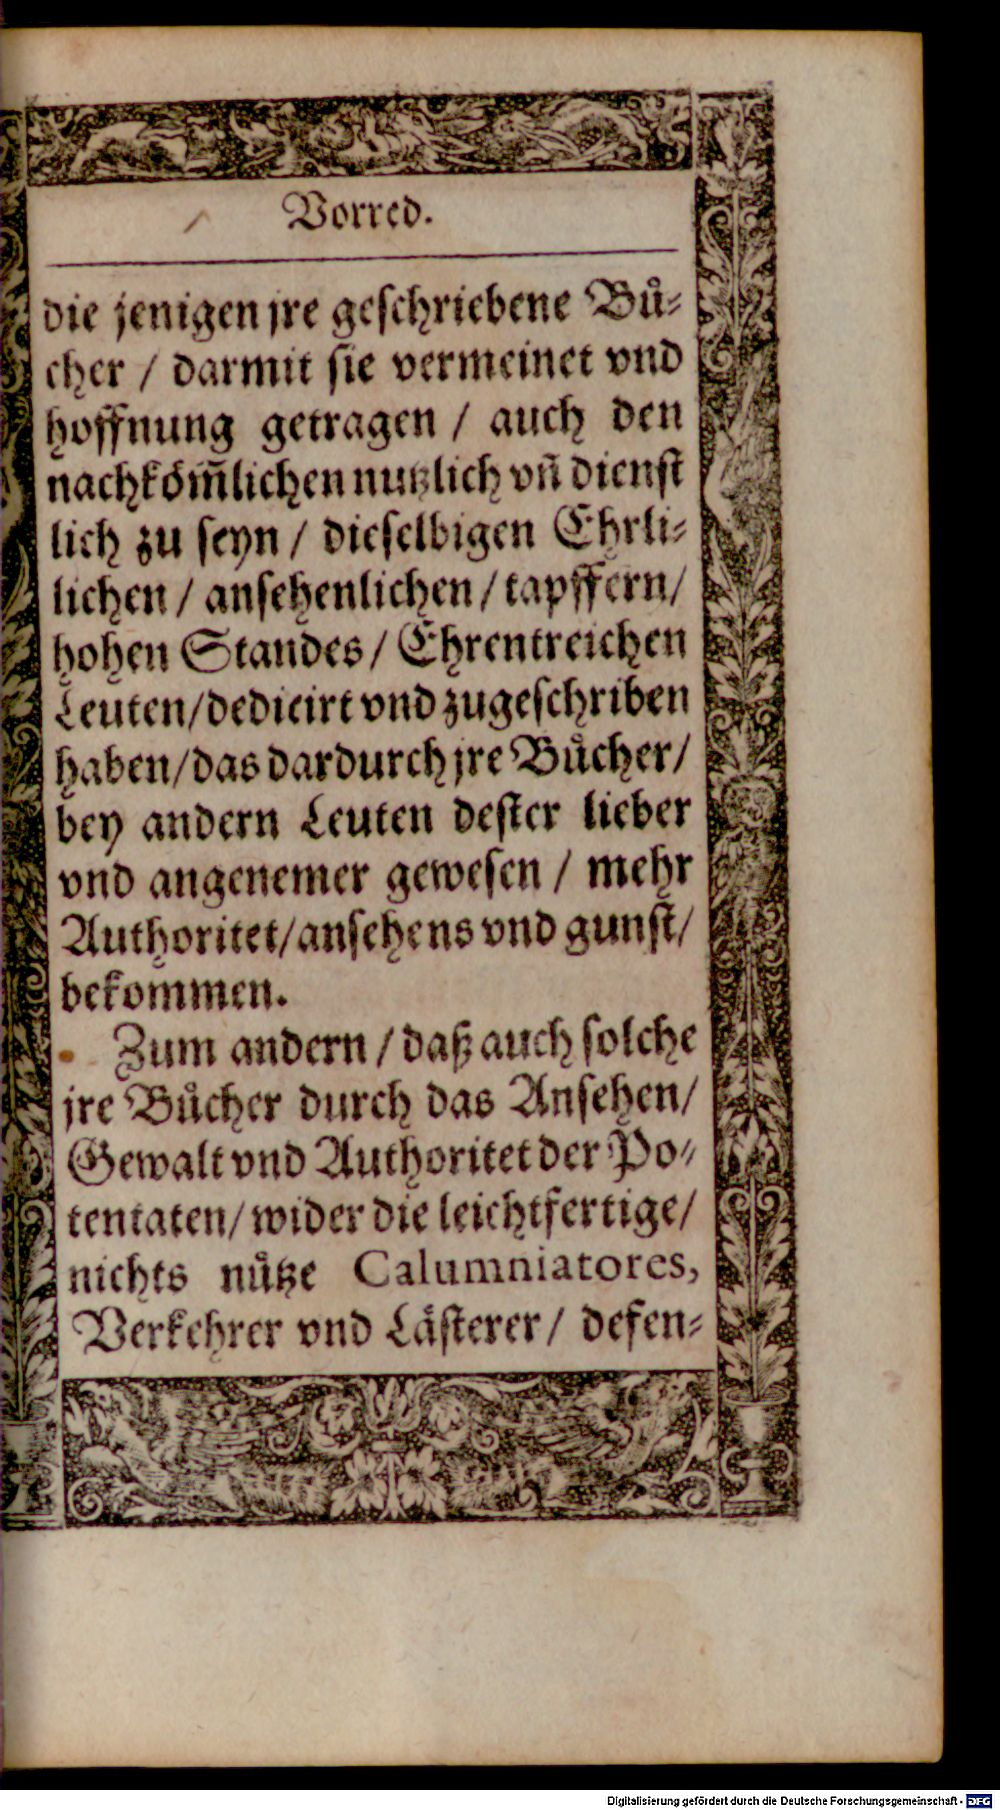 Vorred.
die jenigen jre geschriebene Bů-
cher / darmit sie vermeinet vnd
hoffnung getragen / auch den
nachköm̃lichen nutzlich vñ dienst
lich zu seyn / dieselbigen Ehrli-
lichen / ansehenlichen / tapffern /
hohen Standes / Ehrentreichen
Leuten / dedicirt vnd zugeschriben
haben / das dardurch jre Bůcher /
bey andern Leuten dester lieber
vnd angenemer gewesen / mehr
Authoritet / ansehens vnd gunst /
bekommen.
Zum andern / daß auch solche
jre Bůcher durch das Ansehen /
Gewalt vnd Authoritet der Po-
tentaten / wider die leichtfertige /
nichts nůtze Calumniatores,
Verkehrer vnd Lästerer / defen-
Digitalisierung gefördert durch die Deutsche Forschungsgemeinschaft - DFG